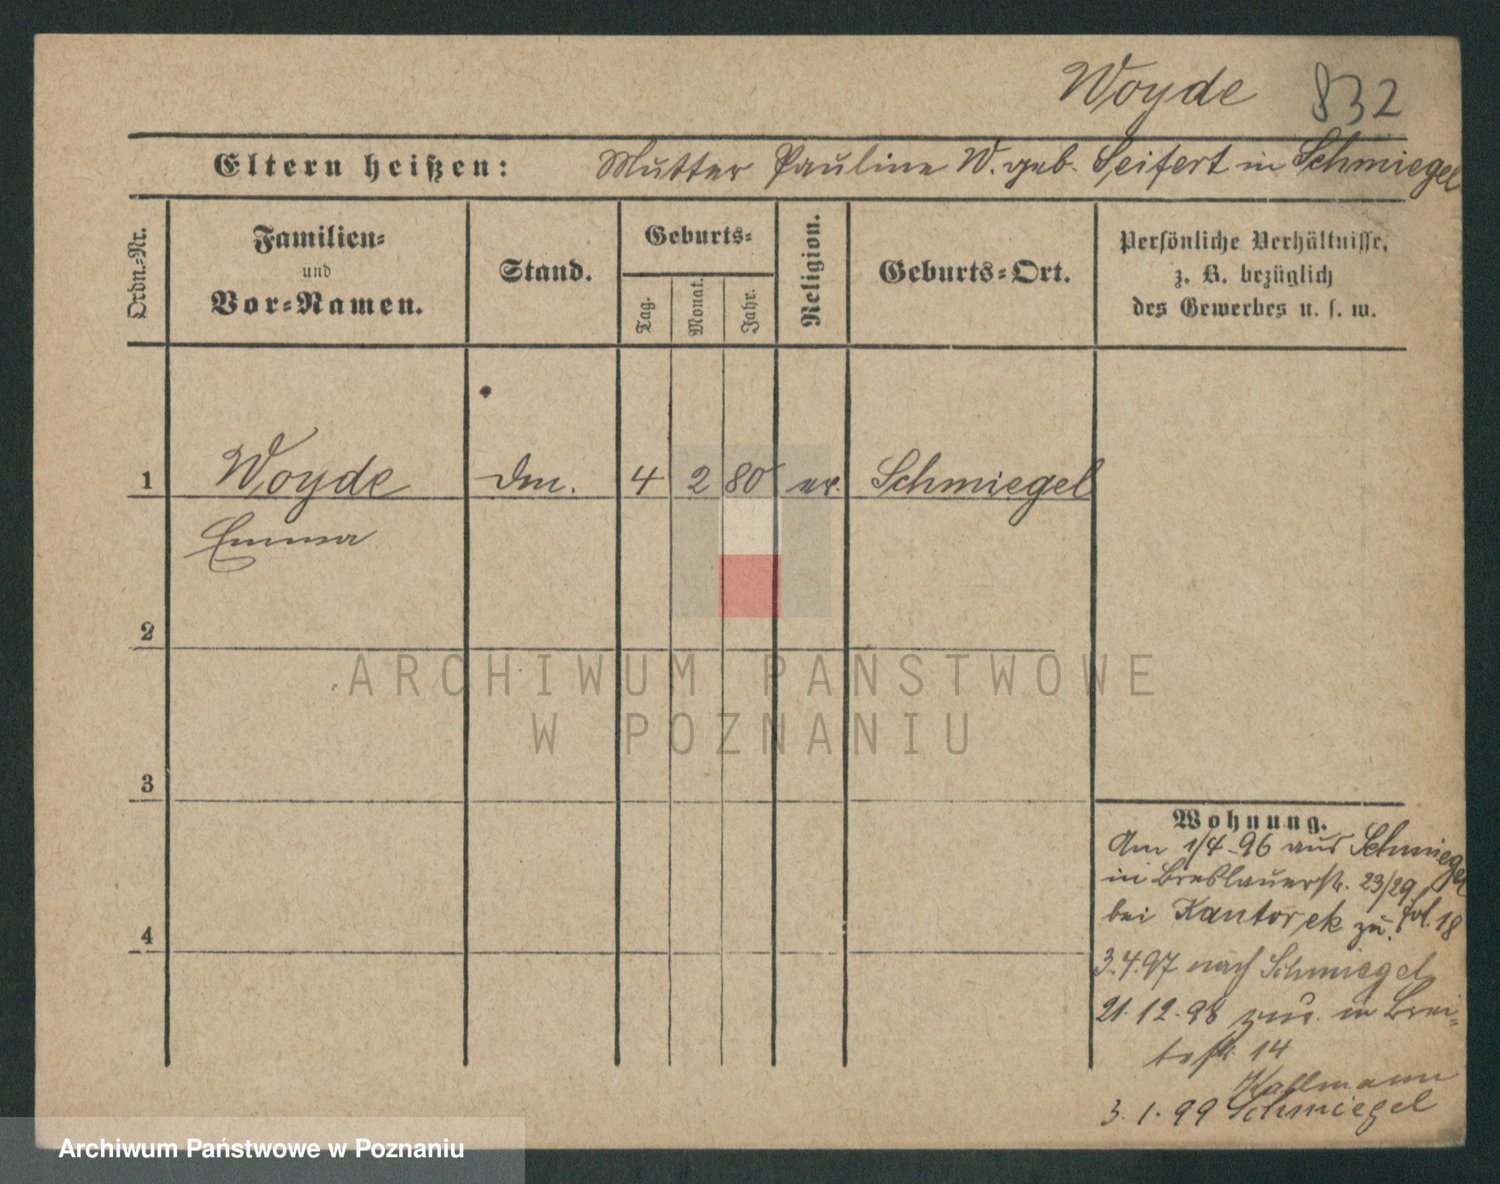 Woyde 832
Eltern heißen: Mutter Pauline W. geb. Seifert in Schmiegel
Ordn.-Nr.
Familien-
und
Vor-Namen.
Stand.
Geburts-
Tag.
Monat.
Jahr.
Religion.
Geburts-Ort.
Persönliche Verhältnisse,
z. B. bezüglich
des Gewerbes u. s. w.
1 Woyde 4 2 80 ev. Schmiegel
Emma
2
ARCHIWUM PAŃSTWOWE
W POZNANIU
3
Wohnung.
Am 1/4-96 aus Schmiegel
in Breslauerstr. 23/29
bei Kantorek zu. 18
4
3.4.97 nach Schmiegel
21.12.98 zur. in Brei-
testr. 14
Kallmann
3.1.99 Schmiegel
Archiwum Państwowe w Poznaniu